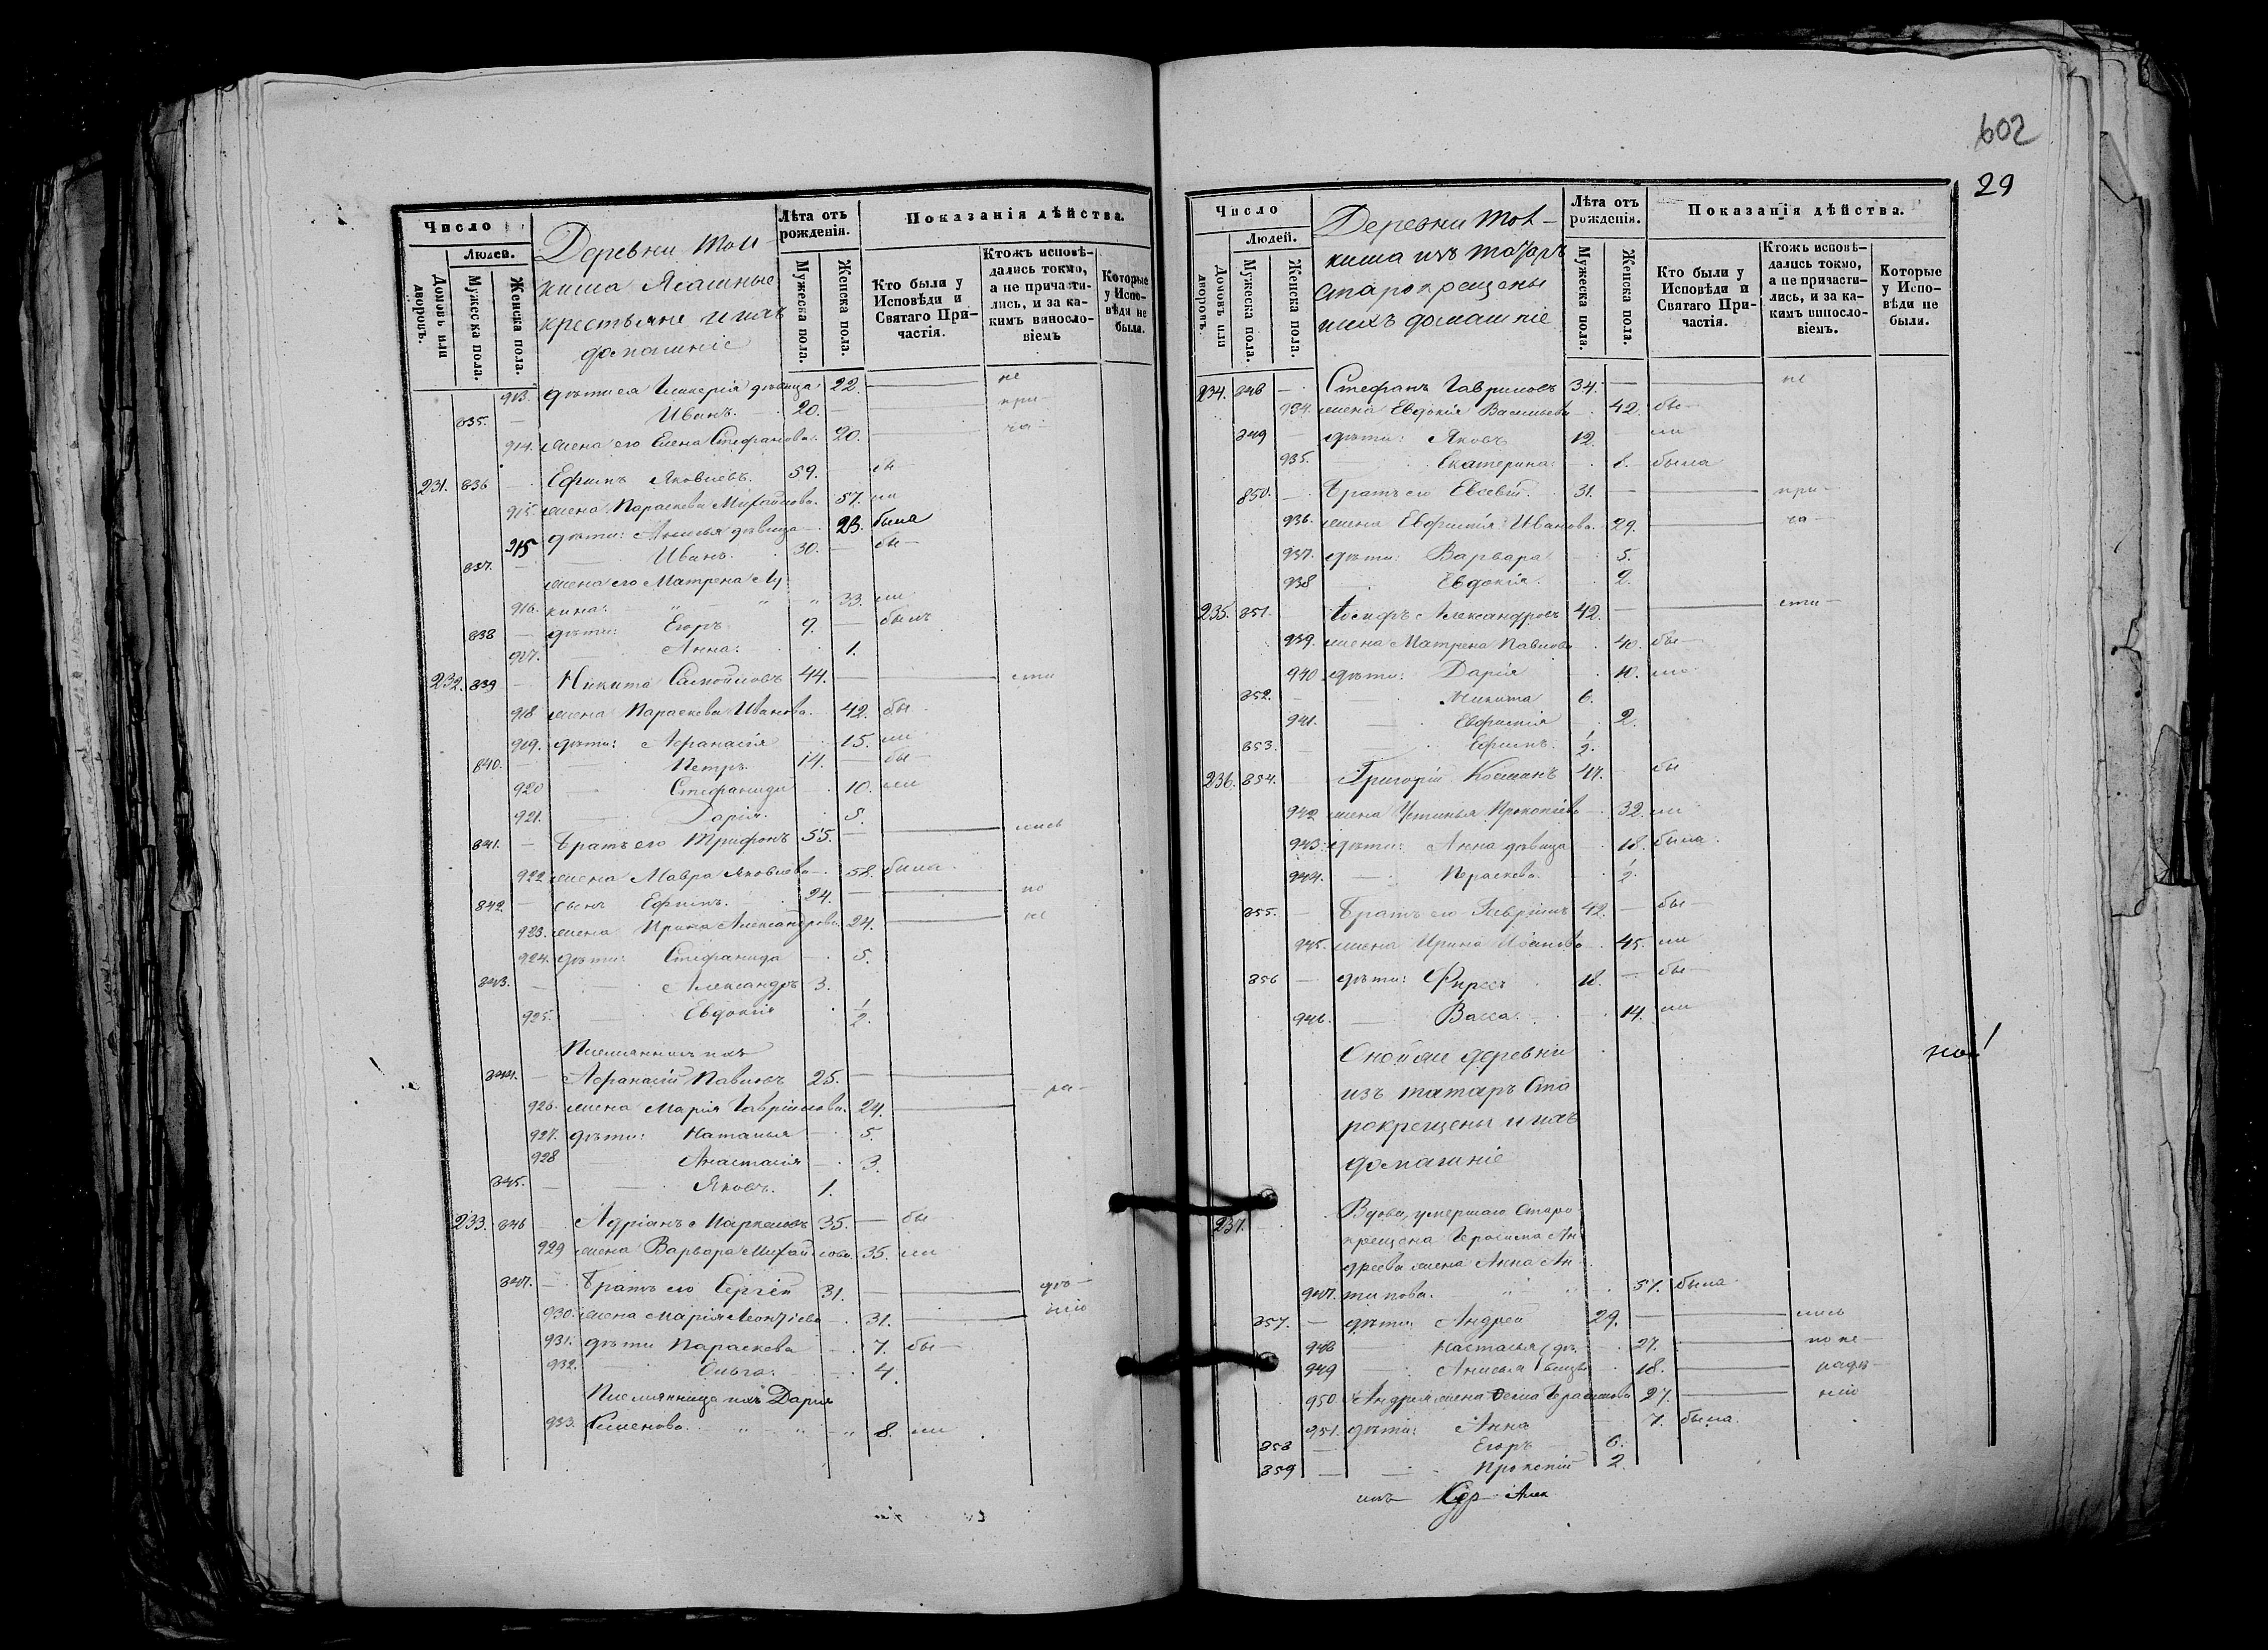 Число
Людей.
Домовъ или дворовъ.
Мужеска пола.
Женска пола.
Деревни Тол-
киша Ясашные
крестьяне и ихъ
домашніе
Лѣта отъ рожденія.
Мужеска пола.
Женска пола.
Показанія дѣйства.
Кто были у Исповѣди и Святаго Причастія.
Ктожъ исповѣдались токмо, а не причастились, и за какимъ винословіемъ
Которые у Исповѣди не были.
913. дѣти ея Гликерія дѣвица 22. не
835. — Иванъ. 20. — при-
914. жена его Елена Стефанова. 20. ча-
231. 836 — Ефимъ Яковлевъ. 59. — бы-
915. жена Параскева Михайлова. 57. ли
915 дѣти: Анисья дѣвица 23. была
837. — Иванъ. 30. — бы-
жена его Матрена Лу
916. кина. 33. ли
838 — дѣти: Егоръ 9. — былъ
917. — Анна. 1.
232. 839 — Никита Самойловъ 44. — сти
918 жена Параскева Иванова. 42. бы-
919. дѣти: Афанасія 15. ли
840. — Петръ 14. — бы
920 — Стефанида 10. ли
921. — Дарія. 5.
841. — Братъ его Трифонъ 55. — лись
922 жена Мавра Яковлева 58. была
842. — сынъ Ефимъ. 24. — по
923. жена Ирина Александрова. 24. не
924. дѣти: Стефанида 5.
843. — Александръ 3.
925. — Евдокія 1/2.
Племянникъ ихъ
844. — Афанасій Павловъ 25. —
926. жена Марія Гавриилова. 24. ра-
927. дѣти: Наталья 5.
928 — Анастасія 3.
845. — Яковъ. 1.
233. 846 — Адріанъ Маркеловъ 35. — бы
929 жена Варвара Михайлова. 35. ли
847. — Братъ его Сергій 31. — дѣ-
930. жена Марія Леонтіева 31. нію
931. дѣти Параскева 7. бы-
932. — Ольга. 4.
Племянница ихъ Дарья
933. Семенова. 8. ли
602
29
Число
Людей.
Домовъ или дворовъ.
Мужеска пола.
Женска пола.
Деревни Тол-
киша изъ татаръ
старокрещены
и ихъ домашніе
Лѣта отъ рожденія.
Мужеска пола.
Женска пола.
Показанія дѣйства.
Кто были у Исповѣди и Святаго Причастія.
Ктожъ исповѣдались токмо, а не причастились, и за какимъ винословіемъ.
Которые у Исповѣди не были.
234. 848 — Стефанъ Гавриловъ 34. — не
934. жена Евдокія Васильева 42. бы-
849 — дѣти: Яковъ 12. — ли
935. — Екатерина. 8. была
850. — Братъ его Евсевій. 31. — при-
936. жена Евфимія Иванова. 29. ча-
937. дѣти: Варвара 5.
938 — Евдокія. 2.
235. 851. Іосифъ Александровъ 42. — сти-
939. жена Матрена Павлова 40. бы-
940 дѣти: Дарія 10. ли
852. — Никита 6.
941. — Евфимія 2.
853. — Ефимъ. 1/2.
236. 854. — Григорій Косманъ 47. бы
942 жена Устинья Прокопіева 32. ли
943. дѣти: Анна дѣвица 18. была.
944. — Праскева. 1/2.
855. — Братъ его Гавріилъ 42. — бы-
945. жена Ирина Иванова 45. ли
856 — дѣти: Фирсъ 18. — бы-
946. — Васса. 14. ли
Оной же деревни
изъ татаръ Ста
рокрещены и ихъ
домашніе
237. — Вдова, умершаго Старо
крещена Герасима Ан
дреева жена Анна Ан
947. типова. 57. была
857. — дѣти: Андрей 29. — лись
948 — Настасья дѣ- 27. по не-
949 — Анисья вицы 18. радѣ
950. Андрея жена Герасимова 27. нію
951. дѣти: Анна 7. была.
858 — Егоръ 6.
859 — — Прокопій 2.